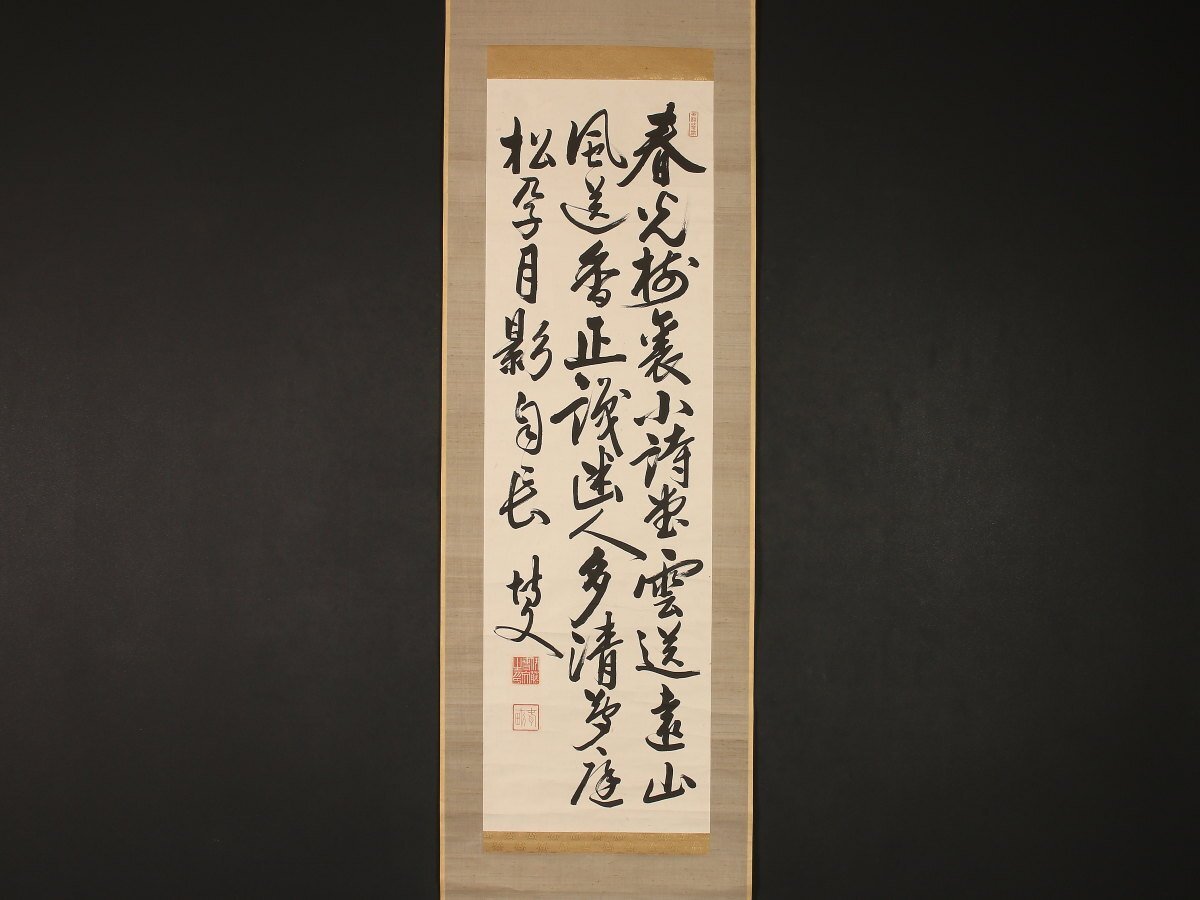 春光樹裏小詩堂雲送遠山
風送香正識幽人多清夢庭
松孕月影自長